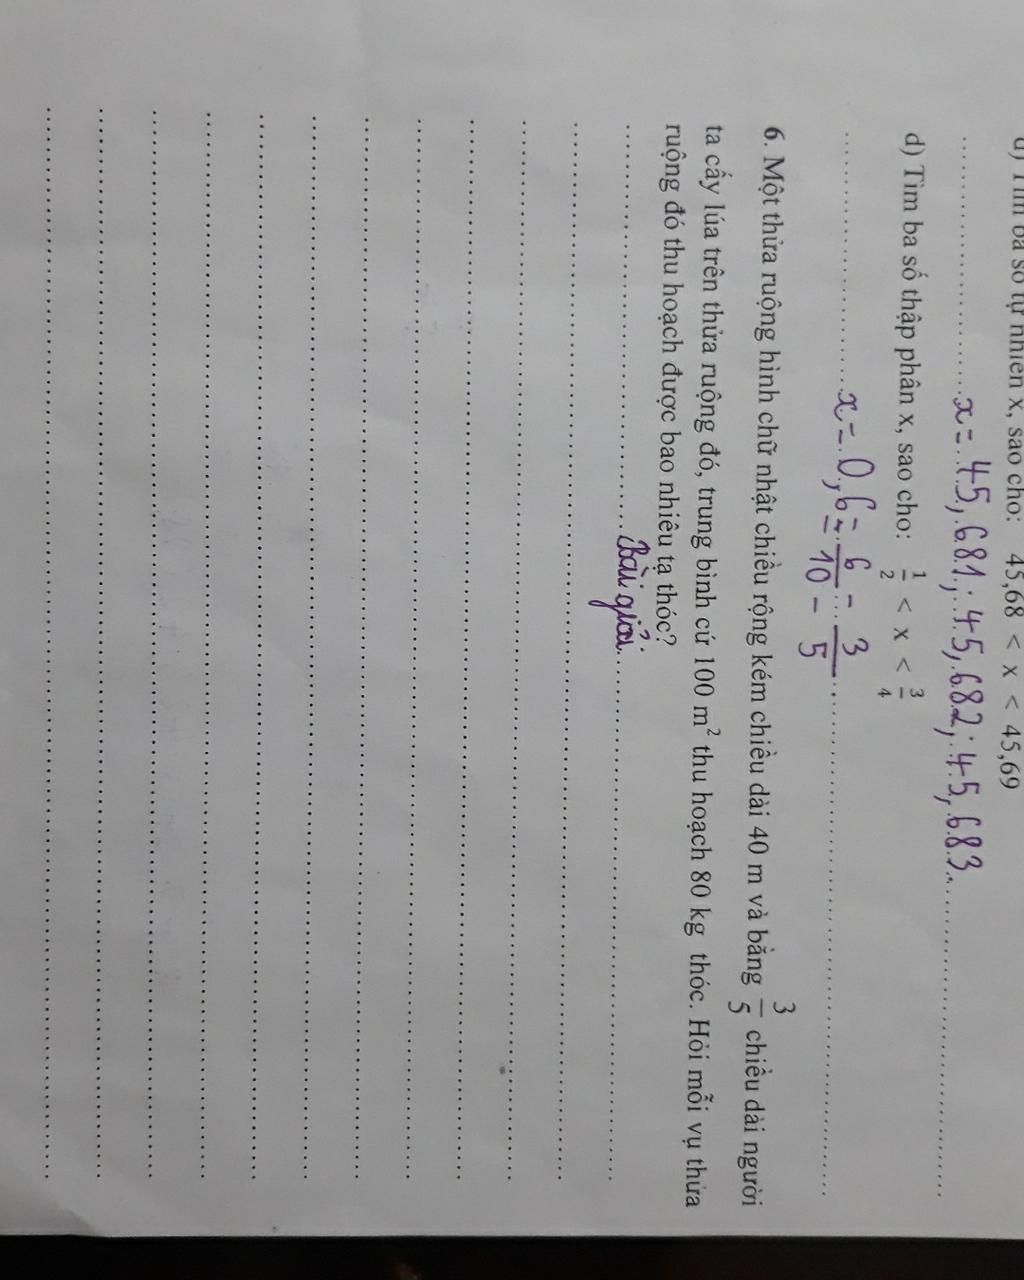 số tự nhiên x, sao cho: 45,68 < x < 45,69
x = 45,681; 45,682; 45,683.
d) Tìm ba số thập phân x, sao cho: 1/2 < x < 3/4
x = 0,6 = 6/10 = 3/5
6. Một thửa ruộng hình chữ nhật chiều rộng kém chiều dài 40 m và bằng 3/5 chiều dài người
ta cấy lúa trên thửa ruộng đó, trung bình cứ 100 m² thu hoạch 80 kg thóc. Hỏi mỗi vụ thửa
ruộng đó thu hoạch được bao nhiêu tạ thóc?
Bài giải